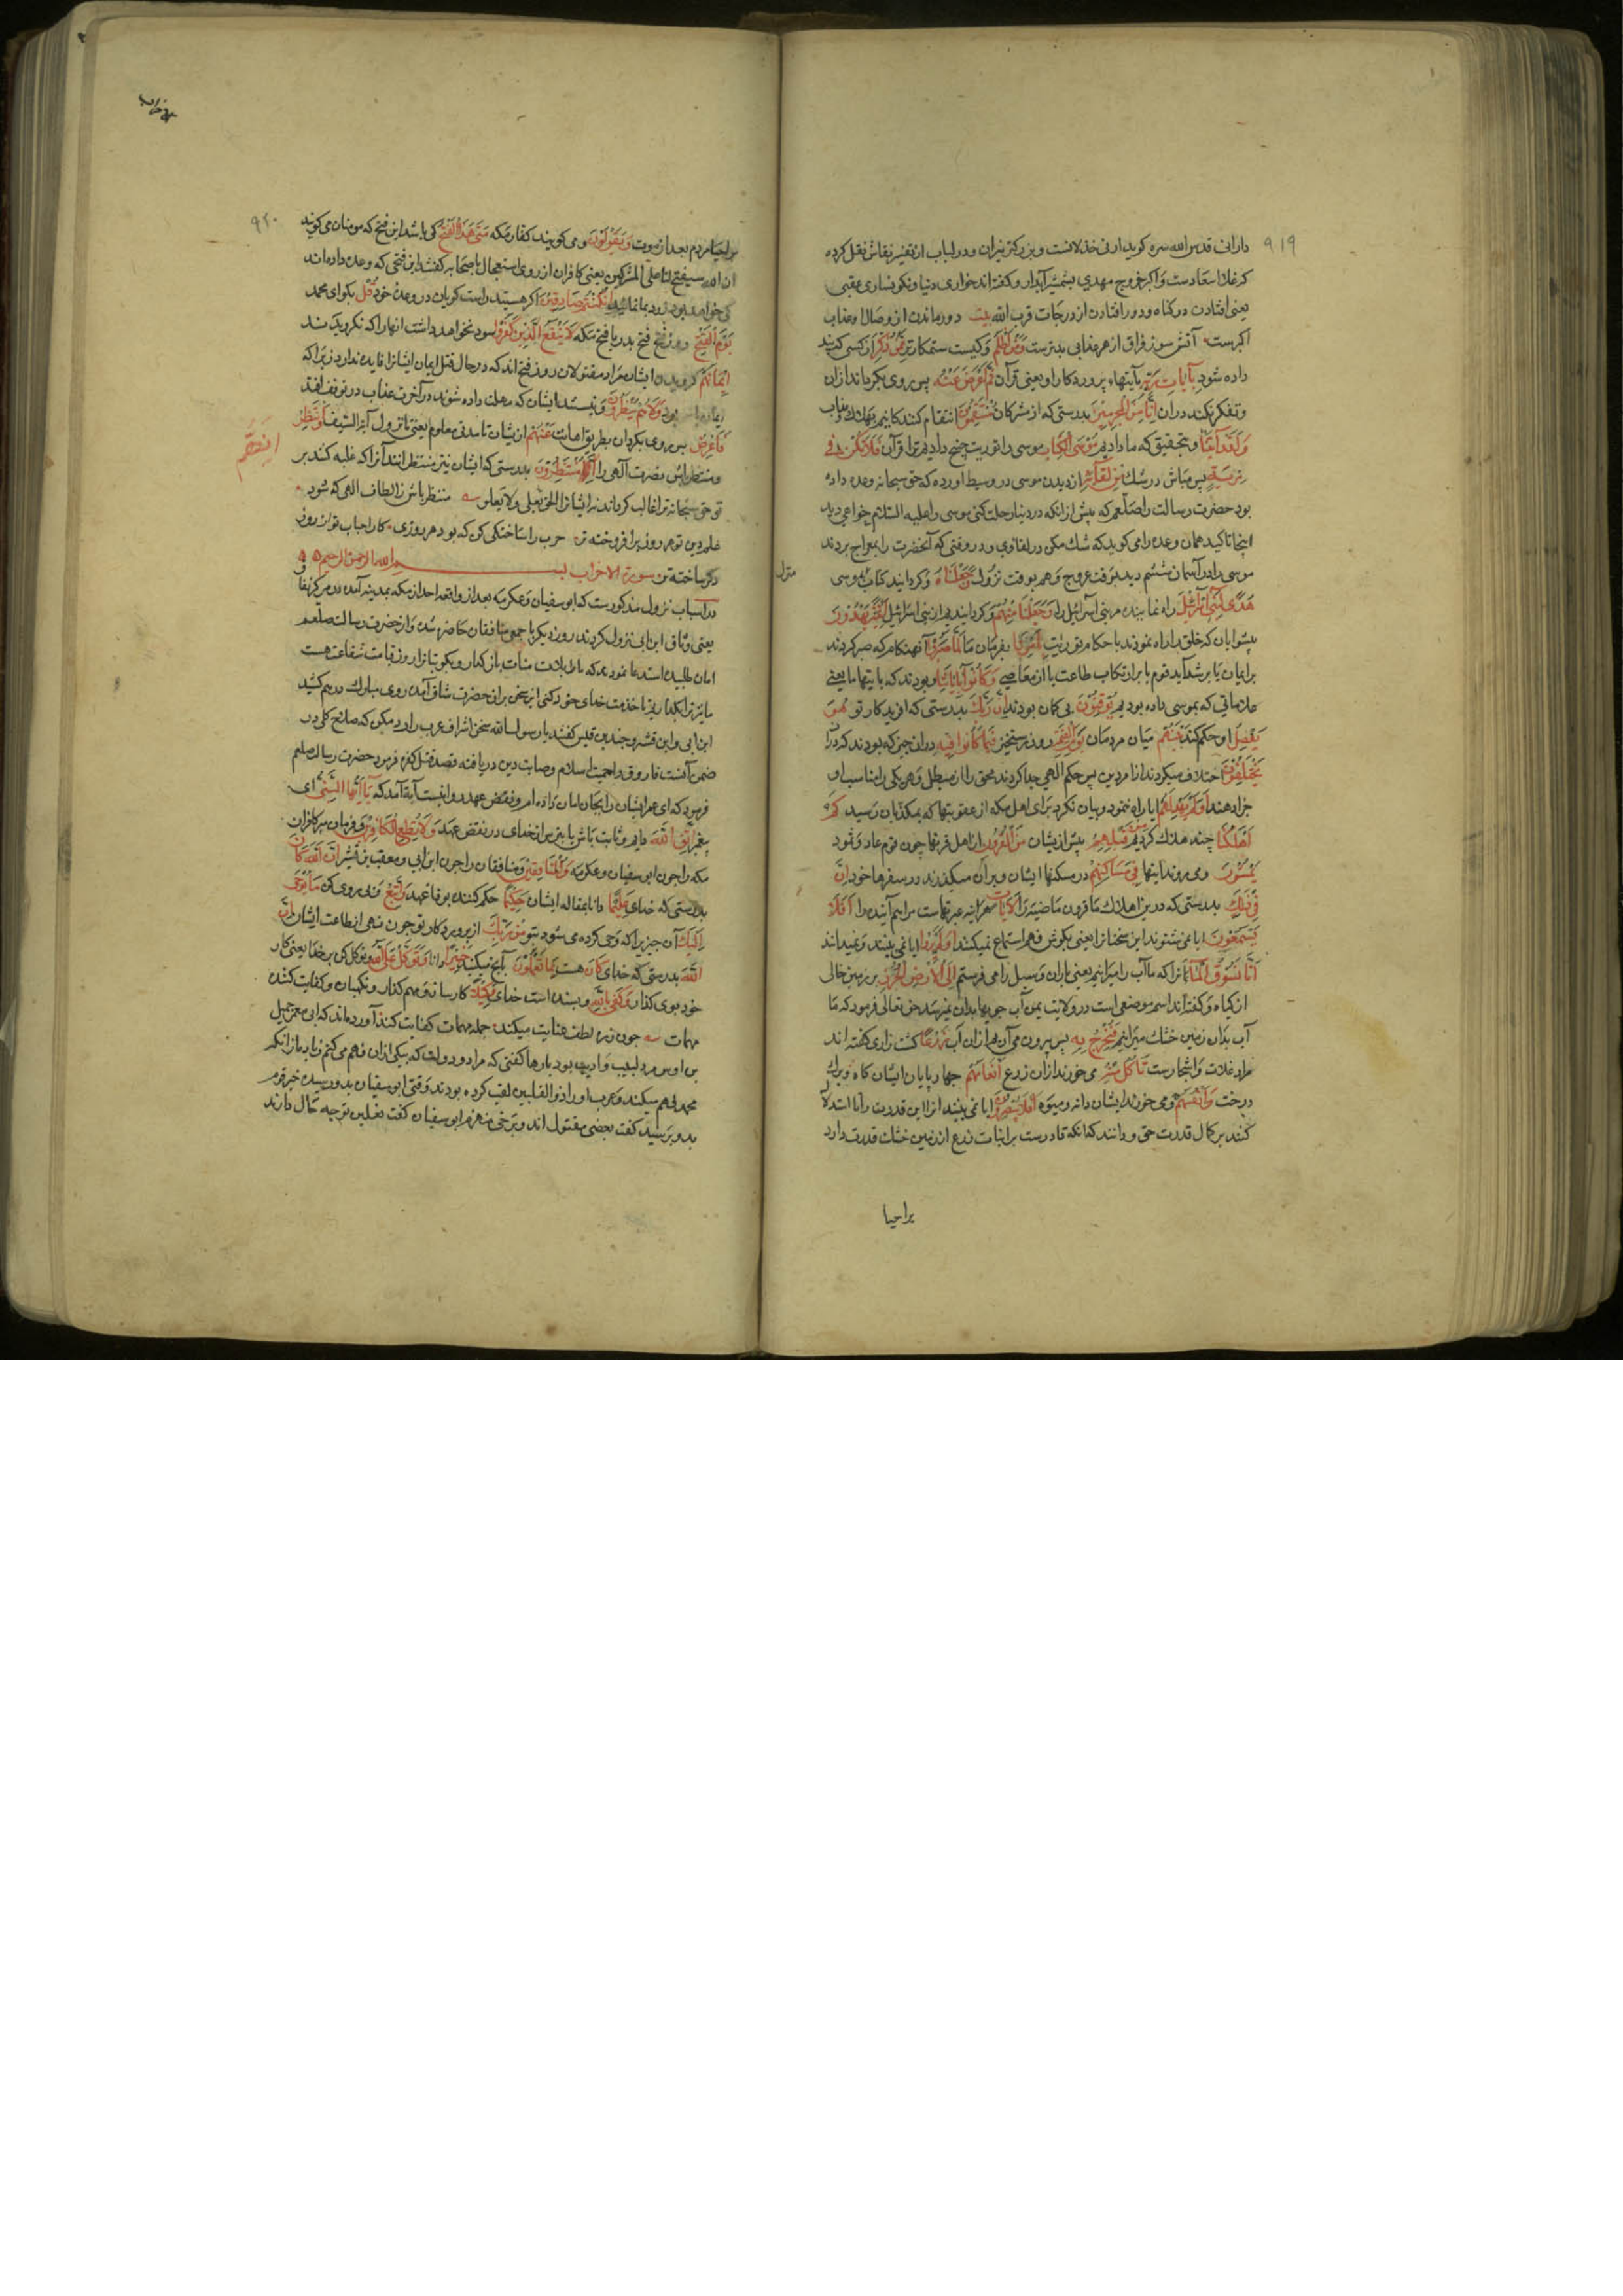 ۹۱۹
دارانی قدس الله سره کوید ادنی خذلانست و بزرکتر نیران و در لباب از تفسیر نقاش نقل کرده
که غلا اسعارست و اکبر خروج مهدی بشمشیر آبدار و کفته اند خواری دنیا و نکونساری عقبی
یعنی افتادن در کناه و دور افتادن از درجات قرب الله بیت دور ماندن از وصال او عذاب
اکبرست آتش سوز فراق از هر عذابی بدترست وَمَنْ أَظْلَمُ و کیست ستمکارتر مِمَّنْ ذُكِّرَ از کسی که پند
داده شود بِآيَاتِ رَبِّهِ بآیتهاء پروردکار او یعنی قرآن ثُمَّ أَعْرَضَ عَنْهَا پس روی بکرداند ازان
و تفکر نکند دران إِنَّا مِنَ الْمُجْرِمِينَ بدرستی که از مشرکان مُنْتَقِمُونَ انتقام کشندکانیم بهلاک و عذاب
وَلَقَدْ آتَيْنَا و بتحقیق که ما دادیم مُوسَى الْكِتَابَ موسی را توریت چنانچه دادیم ترا قرآن فَلَا تَكُنْ فِي
مِرْيَةٍ پس مباش در شک مِنْ لِقَائِهِ از دیدن موسی در وسیط آورده که حق سبحانه وعده داده
بود حضرت رسالت را صلعم که پیش ازانکه از دنیا رحلت کنی موسی را علیه السلام خواهی دید
اینجا تاکید همان وعده را می کوید که شک مکن در لقای وی و در وقتی که آنحضرت را بمعراج بردند
موسی را در آسمان ششم دید بوقت عروج و هم بوقت نزول وَجَعَلْنَاهُ و کردانیدیم کتاب موسی
هُدًى لِبَنِي إِسْرَائِيلَ راه نماینده مر بنی اسرائیل را وَجَعَلْنَا مِنْهُمْ و کردانیدیم از بنی اسرائیل أَئِمَّةً يَهْدُونَ
پیشوایان که خلق را راه نمودند باحکام توریت بِأَمْرِنَا بفرمان ما لَمَّا صَبَرُوا آنهنکام که صبر کردند
بر ایمان یا بر شداید قوم یا بر ارتکاب طاعت یا از معاصی وَكَانُوا بِآيَاتِنَا و بودند که بآیتها ما یعنی
علاماتی که بموسی داده بودیم يُوقِنُونَ بی کمان بودند إِنَّ رَبَّكَ بدرستی که آفریدکار تو هُوَ
يَفْصِلُ او حکم کند بَيْنَهُمْ میان مردمان يَوْمَ الْقِيَامَةِ روز رستخیز فِيمَا كَانُوا فِيهِ دران چیز که بودند که دران
يَخْتَلِفُونَ اختلاف میکردند از امر دین پس حکم الهی جدا کردند محق را از مبطل و هر یکی را مناسب او
جزا دهند أَوَلَمْ يَهْدِ لَهُمْ ایا راه ننمود و بیان نکرد برای اهل مکه از عقوبتها که بمکذبان رسید كَمْ
أَهْلَكْنَا چند هلاک کردیم مِنْ قَبْلِهِمْ پیش از ایشان مِنَ الْقُرُونِ از اهل قرنها چون قوم عاد و ثمود
يَمْشُونَ و می روند اینها فِي مَسَاكِنِهِمْ در مسکنها ایشان و بران میکذرند در سفرها خود إِنَّ
فِي ذَلِكَ بدرستی که درین اهلاک ما قرون ماضیه را لَآيَاتٍ هر آینه عبرتهاست مر امم آینده را أَفَلَا
يَسْمَعُونَ ایا نمی شنوند این سخنانرا یعنی بکوش فهم استماع نمیکنند أَوَلَمْ يَرَوْا ایا نمی بینند و نمیدانند
أَنَّا نَسُوقُ الْمَاءَ انرا که ما آب را میرانیم یعنی باران و سیل را می فرستیم إِلَى الْأَرْضِ الْجُرُزِ بر زمین خالی
از کیاه و کفته اند اسم موضعی است در ولایت یمن آب جویها بدان نمیرسد حق تعالی فرمود که ما
آب بدان زمین خشک میرانیم فَنُخْرِجُ بِهِ پس بیرون می آریم ازان آب زَرْعًا کشت زاری کفته اند
مراد غلات و اشجارست تَأْكُلُ مِنْهُ می خورند ازان زرع أَنْعَامُهُمْ چهارپایان ایشان کاه و برک
درخت وَأَنْفُسُهُمْ و می خورند ایشان دانه و میوه أَفَلَا يُبْصِرُونَ ایا نمی بینند انرا این قدرت را تا استدلال
کنند بر کمال قدرت حق و دانند که انکه قادرست بر انبات زرع از زمین خشک قدرت دارد
بر احیا
منزل
۹۲۰
بر احیاء مردم بعد از موت وَيَقُولُونَ و می کویند کفار مکه مَتَى هَذَا الْفَتْحُ کی باشد این فتح که مومنان می کویند
ان الله سیفتح لنا علی المشرکین یعنی کافران از روی استعجال باصحاب کفتند این فتحی که وعده داده اند
کی خواهد بود زود بما نمائید إِنْ كُنْتُمْ صَادِقِينَ اکر هستید راست کویان در وعده خود قُلْ بکو ای محمد
يَوْمَ الْفَتْحِ روز فتح بدر یا فتح مکه لَا يَنْفَعُ الَّذِينَ كَفَرُوا سود نخواهد داشت انها را که نکرویدند
إِيمَانُهُمْ کرویدن ایشان مراد مقتولان روز فتح اند که در حال قتل ایمان ایشانرا فایده ندارد زیرا که
وَلَا هُمْ يُنْظَرُونَ و نیستند ایشان که مهلت داده شوند در آخرت عذاب در توقف افتد
فَأَعْرِضْ پس روی بکردان بطریق اهانت عَنْهُمْ از ایشان تا مدتی معلوم یعنی تا نزول آیة السیف وَانْتَظِرْ
و منتظر باش نصرت الهی را إِنَّهُمْ مُنْتَظِرُونَ بدرستی که ایشان نیز منتظرانند آنرا که غلبه کنند بر
تو حق سبحانه ترا غالب کرداند نه ایشانرا الحق یعلی و لا یعلو منتظر باش ز الطاف الهی که شود
علم دین تو هر روز برافروخته تر حرب را ساختکی کن که بود هر روزی کار احباب تو از روز
دکر ساخته تر سورة الاحزاب بسم الله الرحمن الرحیم
در اسباب نزول مذکورست که ابوسفیان و عکرمه بعد از واقعه احد از مکه بمدینه آمده در مرکز نفاق
یعنی وثاق ابن ابی نزول کردند روز دیکر با جمعی منافقان حاضر شده و از حضرت رسالت صلعم
امان طلبیده استدعا نمودند که ما را بلات و منات بازکذار و بکو بتانرا روز قیامت شفاعت هست
ما نیز ترا بکذاریم تا خدمت خدای خود کنی این سخن بران حضرت شاق آمده روی مبارک درهم کشید
ابن ابی و ابن قشیر و جد بن قیس کفتند یا رسول الله سخن اشراف عرب را رد مکن که صلاح کلی در
ضمن آنست فاروق را حمیت اسلام و صلابت دین دریافته قصد قتل کفره فرمود حضرت رسالت صلعم
فرمود که ای عمر ایشان را بجان امان داده ام و نقض عهد روا نیست آیة آمد که يَا أَيُّهَا النَّبِيُّ ای
پیغمبر اتَّقِ اللَّهَ دایم و ثابت باش یا بترس از خدای در نقض عهد وَلَا تُطِعِ الْكَافِرِينَ و فرمان مبر کافران
مکه را چون ابوسفیان و عکرمه وَالْمُنَافِقِينَ و منافقان را چون ابن ابی و معتب بن قشیر إِنَّ اللَّهَ كَانَ
بدرستی که خدای عَلِيمًا دانا بمقاله ایشان حَكِيمًا حکم کننده بوفا عهد وَاتَّبِعْ و پی روی کن مَا يُوحَى
إِلَيْكَ آن چیز را که وحی کرده می شود بتو مِنْ رَبِّكَ از پروردکار تو چون نهی از طاعت ایشان إِنَّ
اللَّهَ بدرستی که خدای كَانَ هست بِمَا تَعْمَلُونَ بآنچه میکنید خَبِيرًا دانا وَتَوَكَّلْ عَلَى اللَّهِ و توکل کن بر خدا یعنی کار
خود بوی کذار وَكَفَى بِاللَّهِ و بسنده است خدای وَكِيلًا کارساز و مهم کذار و نکهبان و کفایت کننده
مهمات چون زره لطف عنایت میکند جمله مهمات کفایت کند آورده اند که ابی معمر جمیل
بن اوس مرد لبیب و ادیب بود بارها کفتی که مرا دو دلست که بیکی ازان فهم می کنم زیاده ازانکه
محمد فهم میکند و عرب او را ذو القلبین لقب کرده بودند وقتی ابوسفیان بدو رسید خبر قوم
بدو پرسید کفت بعضی مقتول اند و برخی منهزم ابوسفیان کفت نعلین تو چه حال دارند